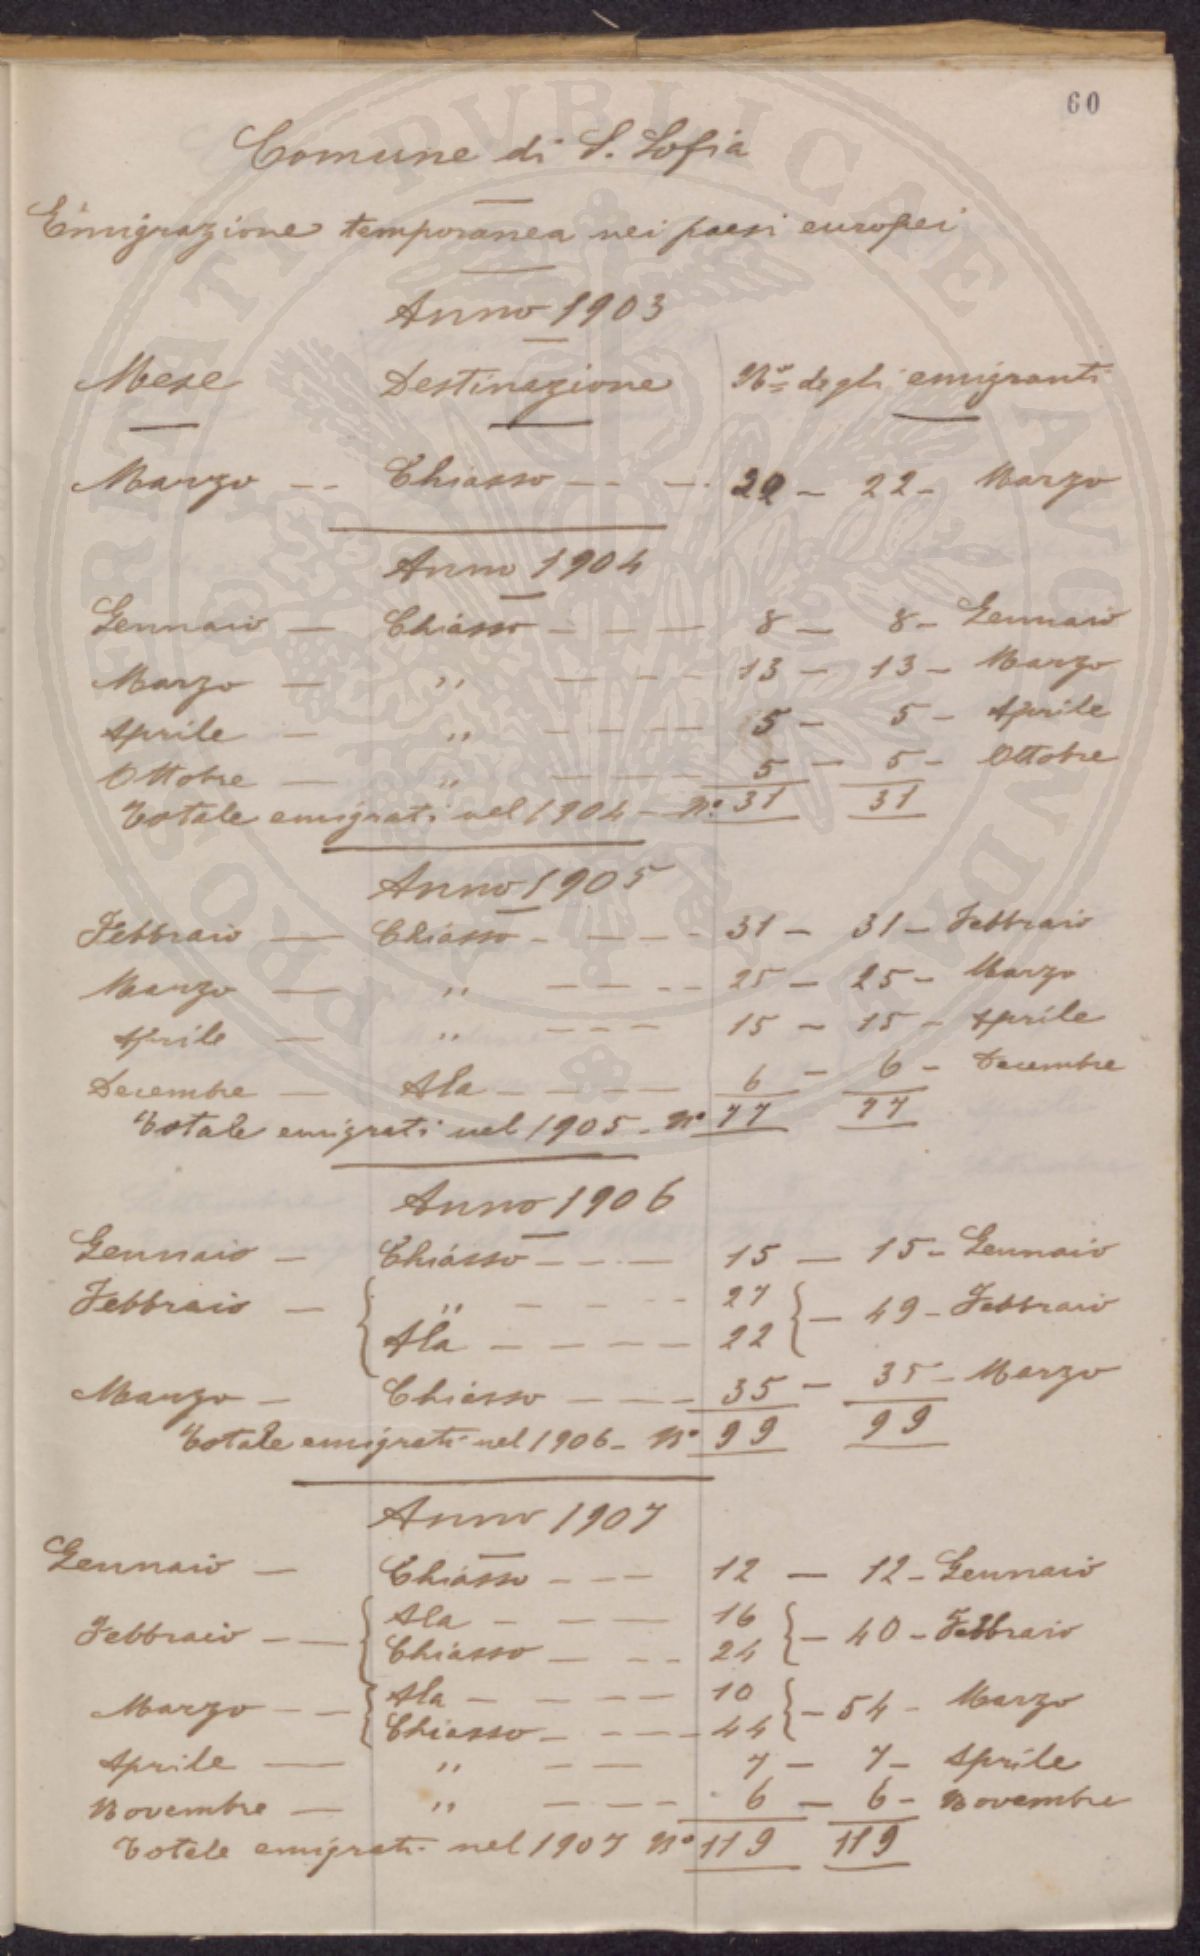 60
Comune di S. Sofia
Emigrazione temporanea nei paesi europei
Anno 1903
Mese Destinazione N.º degli emigranti
Marzo -- Chiasso -- -- 22 - 22 - Marzo
Anno 1904
Gennaio — Chiasso - - - — 8 — 8 - Gennaio
Marzo — " — - - - 13 - 13 - Marzo
Aprile — " - - - - 5 - 5 - Aprile
Ottobre — " — - - - 5 — 5 - Ottobre
Totale emigrati nel 1904 - Nº. 31 31
Anno 1905
Febbraio — Chiasso - - - - 31 - 31 - Febbraio
Marzo — " - - - - 25 - 25 - Marzo
Aprile — " - - - 15 - 15 - Aprile
Decembre — Ala - - - - 6 - 6 - Decembre
Totale emigrati nel 1905 - Nº 77 77
Anno 1906
Gennaio - Chiasso - - - — 15 — 15 - Gennaio
Febbraio - { " - - - - 27 } - 49 - Febbraio
Ala - - - - - 22
Marzo - Chiasso - - - - 35 - 35 - Marzo
Totale emigrati nel 1906 - Nº 99 99
Anno 1907
Gennaio - Chiasso - - - 12 — 12 - Gennaio
Febbraio - — { Ala - - - - 16 } - 40 - Febbraio
Chiasso — - - - 24
Marzo - - - { Ala - - - - 10 } - 54 - Marzo
Chiasso - - - - - 44
Aprile — " - - - 7 - 7 - Aprile
Novembre — " - - - - 6 - 6 - Novembre
Totale emigrati nel 1907 Nº 119 119
PROSPERITATI PVBLICAE AVGENDAE